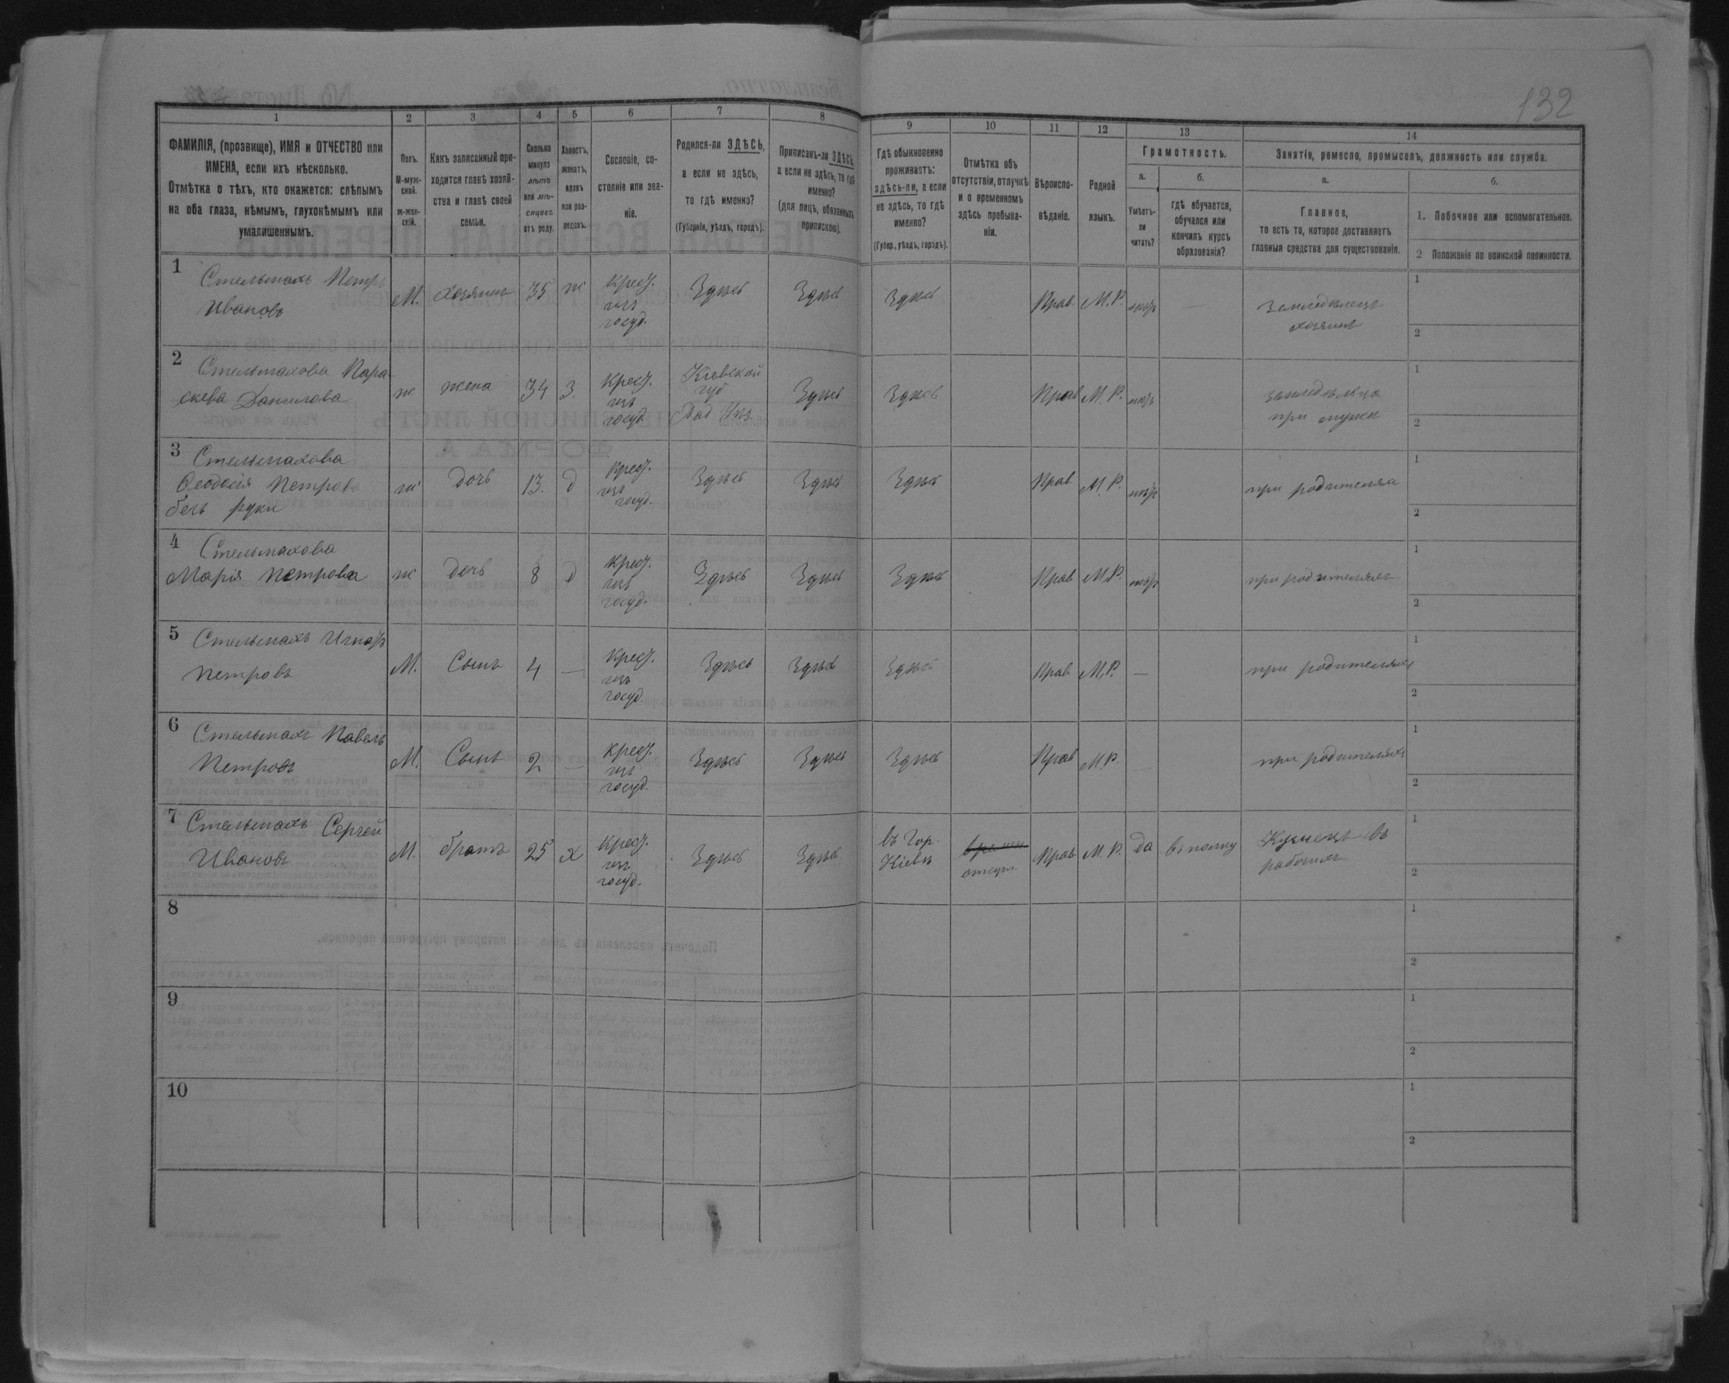 132
1
2
3
4
5
6
7
8
9
10
11
12
13
14
ФАМИЛІЯ, (прозвище), ИМЯ и ОТЧЕСТВО или
ИМЕНА, если ихъ нѣсколько.
Отмѣтка о тѣхъ, кто окажется: слѣпымъ
на оба глаза, нѣмымъ, глухонѣмымъ или
умалишеннымъ.
Полъ.
М-муж-
ской.
ж-жен-
скій.
Какъ записанный при-
ходится главѣ хозяй-
ства и главѣ своей
семьи.
Сколько
минуло
лѣтъ
или мѣ-
сяцевъ
отъ роду.
Холостъ,
женатъ,
вдовъ
или раз-
веденъ.
Сословіе, со-
стояніе или зва-
ніе.
Родился-ли ЗДѢСЬ,
а если не здѣсь,
то гдѣ именно?
(Губернія, уѣздъ, городъ).
Приписанъ-ли ЗДѢСЬ,
а если не здѣсь, то гдѣ
именно?
(для лицъ, обязанныхъ
припискою).
Гдѣ обыкновенно
проживаетъ:
здѣсь-ли, а если
не здѣсь, то гдѣ
именно?
(Губер., уѣздъ, городъ).
Отмѣтка объ
отсутствіи, отлучкѣ
и о временномъ
здѣсь пребыва-
ніи.
Вѣроиспо-
вѣданіе.
Родной
языкъ.
Грамотность.
а.
Умѣетъ-
ли
читать?
б.
гдѣ обучается,
обучался или
кончилъ курсъ
образованія?
Занятіе, ремесло, промыселъ, должность или служба.
а.
Главное,
то есть то, которое доставляетъ
главныя средства для существованія.
б.
1. Побочное или вспомогательное.
2 Положеніе по воинской повинности.
1
Стельмахъ Петръ
Ивановъ
М. хозяинъ 35 ж Крест. изъ госуд. Здѣсь Здѣсь Здѣсь Прав М.Р. —
земледѣлецъ
хозяинъ
1
2
2
Стельмахова Пара-
скева Данилова
ж жена 34 З. Крест. изъ госуд. Кіевской губ Здѣсь Здѣсь Прав М.Р.
при мужѣ
1
2
3
Стельмахова
Ѳеодосія Петрова
безъ руки
ж дочь 13. д Крест. изъ госуд. Здѣсь Здѣсь Здѣсь Прав М.Р. при родителяхъ
1
2
4
Стельмахова
Марія Петрова
ж дочь 8 д Крест. изъ госуд. Здѣсь Здѣсь Здѣсь Прав М.Р. при родителяхъ
1
2
5
Стельмахъ Игнатъ
Петровъ
М. Сынъ 4 — Крест. изъ госуд. Здѣсь Здѣсь Здѣсь Прав М.Р. — при родителяхъ
1
2
6
Стельмахъ Павелъ
Петровъ
М. Сынъ 2 — Крест. изъ госуд. Здѣсь Здѣсь Здѣсь Прав М.Р. при родителяхъ
1
2
7
Стельмахъ Сергей
Ивановъ
М. братъ 25 х Крест. изъ госуд. Здѣсь Здѣсь въ Гор. Кіевѣ отсут. Прав М.Р. да в полку
1
2
8
1
2
9
1
2
10
1
2